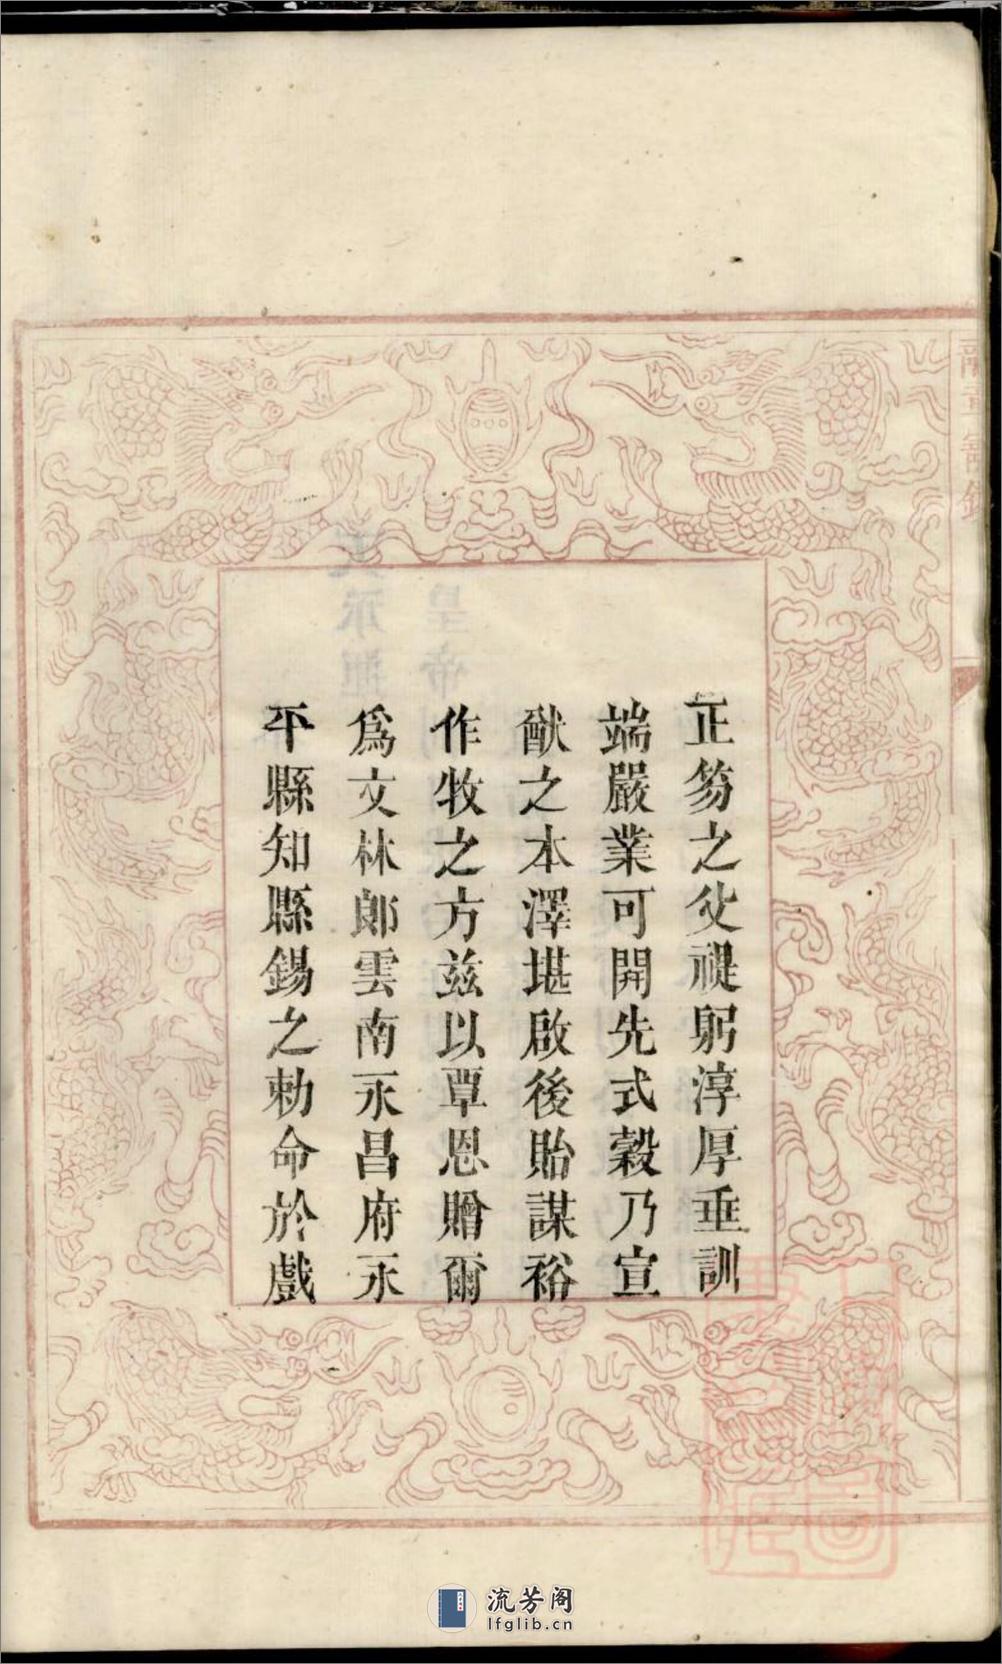 正笏之父禔躬淳厚垂訓
端嚴業可開先式穀乃宣
猷之本澤堪啟後貽謀裕
作牧之方兹以覃恩贈爾
爲文林郎雲南永昌府永
平縣知縣錫之勅命於戲
流芳阁
lfglib.cn